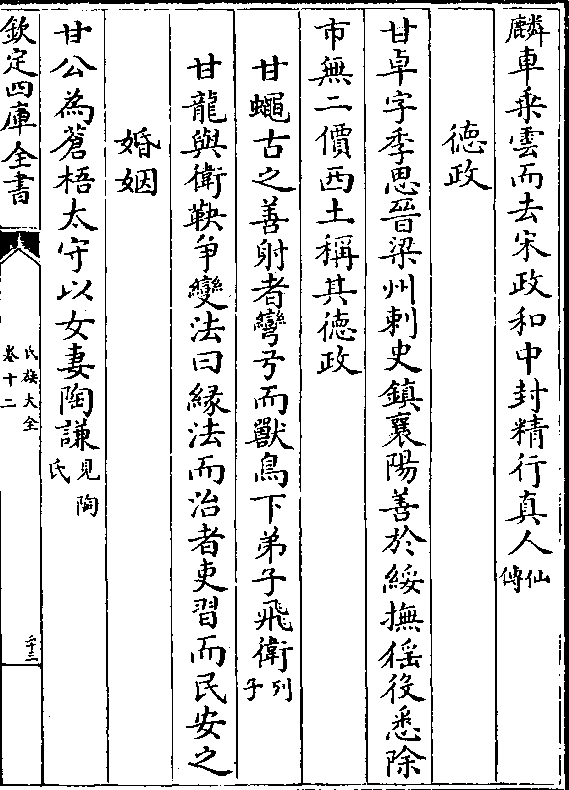 麟車乘雲而去宋政和中封精行真人仙傳
德政
甘卓字季思晉梁州刺史鎮襄陽善於綏撫徭役悉除
市無二價西土稱其德政
甘蠅古之善射者彎弓而獸鳥下弟子飛衛列子
甘龍與衛鞅爭變法曰緣法而治者吏習而民安之
婚姻
甘公為蒼梧太守以女妻陶謙見陶氏
欽定四庫全書
氏族大全
卷十二
二十三